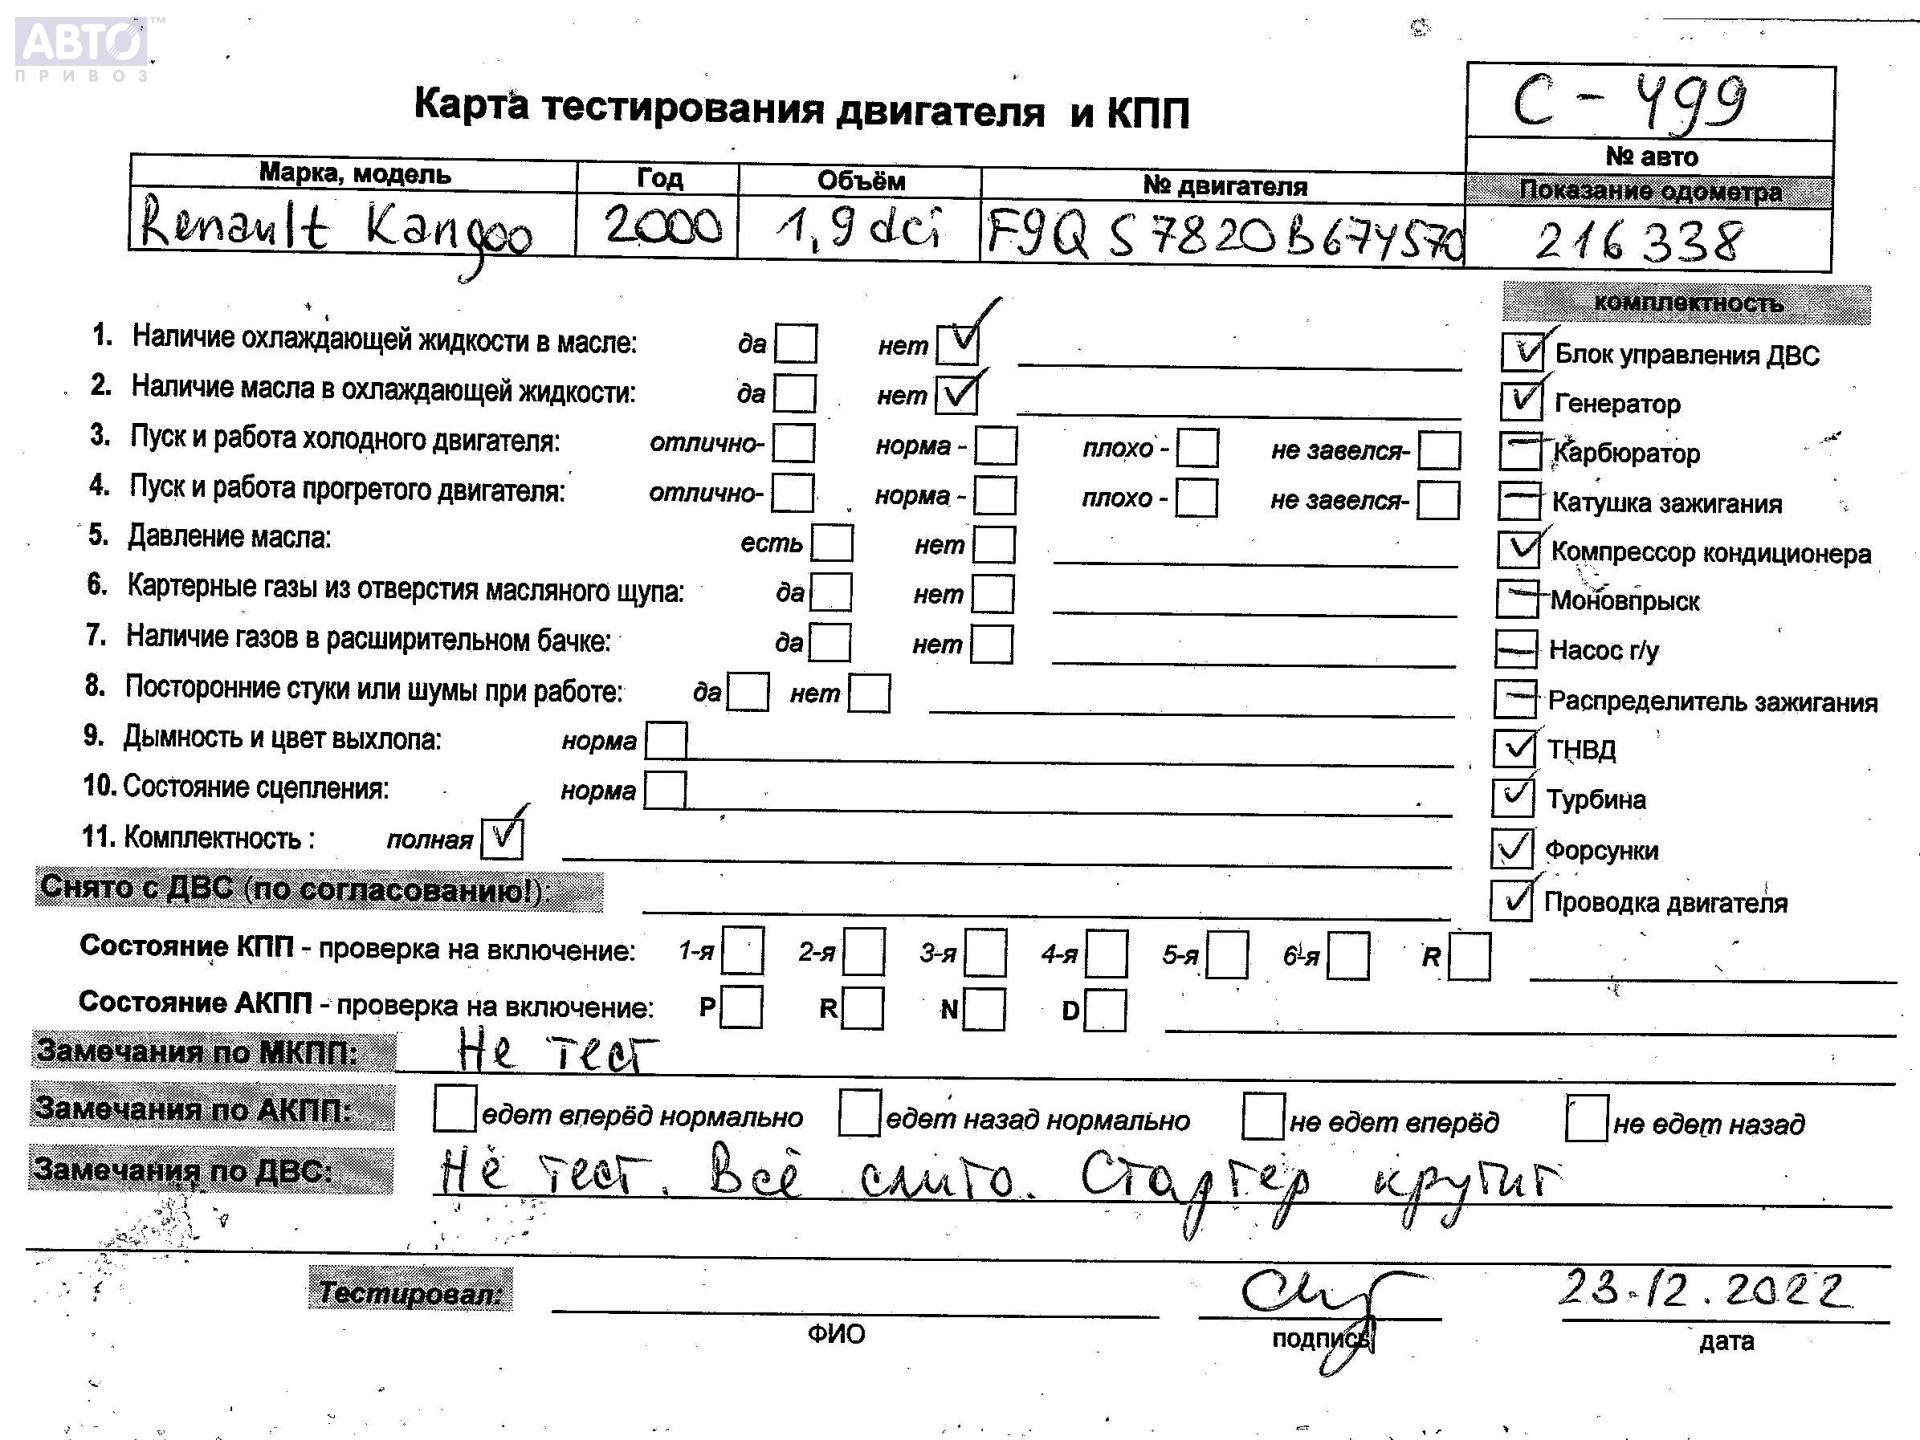 АВТО™
ПРИВОЗ
Карта тестирования двигателя и КПП
С-499
№ авто
Марка, модель Год Объём № двигателя Показание одометра
Renault Kangoo 2000 1,9 dci F9Q S782 216 338
комплектность
1. Наличие охлаждающей жидкости в масле: да нет ✓
2. Наличие масла в охлаждающей жидкости: да нет ✓
3. Пуск и работа холодного двигателя: отлично- норма - плохо - не завелся-
4. Пуск и работа прогретого двигателя: отлично- норма - плохо - не завелся-
5. Давление масла: есть нет
6. Картерные газы из отверстия масляного щупа: да нет
7. Наличие газов в расширительном бачке: да нет
8. Посторонние стуки или шумы при работе: да нет
9. Дымность и цвет выхлопа: норма
10. Состояние сцепления: норма
11. Комплектность : полная ✓
✓ Блок управления ДВС
✓ Генератор
— Карбюратор
— Катушка зажигания
✓ Компрессор кондиционера
— Моновпрыск
— Насос г/у
— Распределитель зажигания
✓ ТНВД
✓ Турбина
✓ Форсунки
✓ Проводка двигателя
Снято с ДВС (по согласованию!):
Состояние КПП - проверка на включение: 1-я 2-я 3-я 4-я 5-я 6-я R
Состояние АКПП - проверка на включение: P R N D
Замечания по МКПП: Не тест
Замечания по АКПП: едет вперёд нормально едет назад нормально не едет вперёд не едет назад
Замечания по ДВС: Не тест. Всё слито. Стартер крутит
Тестировал: 23.12.2022
ФИО подпись дата